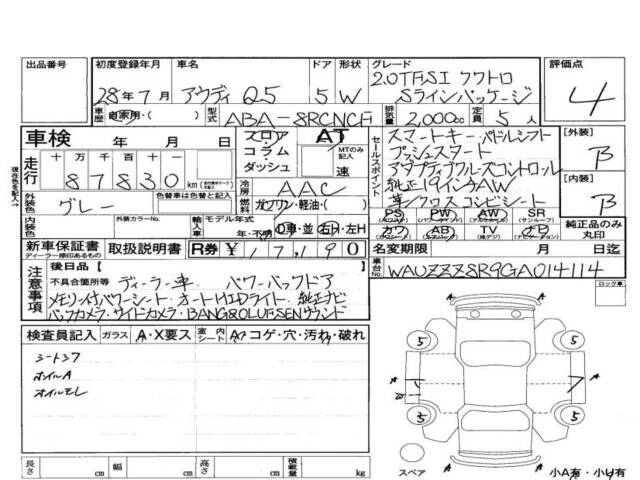 出品番号
初度登録年月 車名 ドア 形状 グレード 評価点
28年7月 アウディ Q5 5 W 2.0TFSI クワトロ
Sラインパッケージ
4
車歴 自家用・( ) 型式 ABA-8RCNCF 排気量 2,000cc 定員 5人
車検 年 月 日 フロア・コラム・ダッシュ AT
MTのみ記入 速
走行 十万 万 千 百 十 一
87830 km
冷房 AAC
外装色 グレー 燃料 ガソリン・軽油・( )
内装色 外装カラーNo. 輸入車 モデル年式 年・不明 D車・並 右H・左H
現在色を記入
セールスポイント
スマートキー パドルシフト
プッシュスタート
アダプティブクルーズコントロール
純正19インチAW
革/クロス コンビシート
PS PW AW SR
カワ AB TV ナビ
【外装】
B
【内装】
B
純正品のみ丸印
新車保証書 取扱説明書 R券 ¥17,190
ディーラー捺印あるもの
名変期限 月 日迄
車台No. WAUZZZ8R9GA014114
注意事項
後日品【 】
不具合箇所等 ディーラー車 パワーバックドア
メモリー付パワーシート オートHIDライト 純正ナビ
バックカメラ・サイドカメラ・BANG&OLUFSENサウンド
ロック車
検査員記入 ガラス A・X要ス 室内シート A・コゲ・穴・汚れ・破れ
シートスフ
ホイルA
オイルモレ
5 5
5 5
A A
A A
スペア
小A有・小U有
長さ cm 幅 cm 高さ cm 積載量 kg